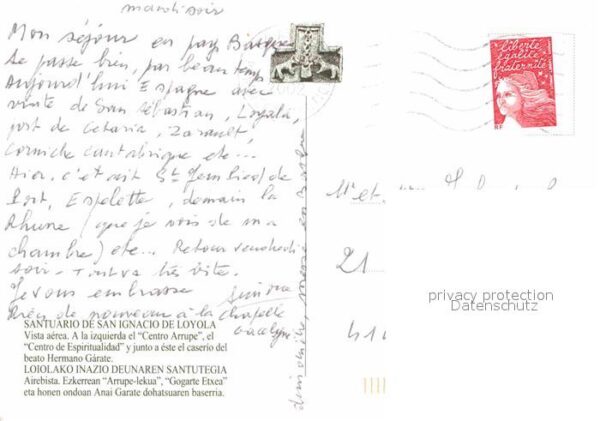 mardi soir
Mon séjour en pays Basque
se passe bien, par beau temps
Aujourd'hui Espagne avec
visite de San Sébastian, Loyola,
port de Getaria, Zarautz,
Corniche cantabrique etc...
Hier, c'était St Jean Pied de
Port, Espelette, demain la
Rhune (que je vois de ma
chambre) etc... Retour vendredi
soir - Tout va très vite.
Je vous embrasse
Simone
de nouveau à la chapelle
SANTUARIO DE SAN IGNACIO DE LOYOLA
Vista aérea. A la izquierda el "Centro Arrupe", el
"Centro de Espiritualidad" y junto a éste el caserío del
beato Hermano Gárate.
LOIOLAKO INAZIO DEUNAREN SANTUTEGIA
Airebista. Ezkerrean "Arrupe-lekua", "Gogarte Etxea"
eta honen ondoan Anai Garate dohatsuaren baserria.
messe en Basque
liberté
égalité
fraternité
RF
21
privacy protection
Datenschutz